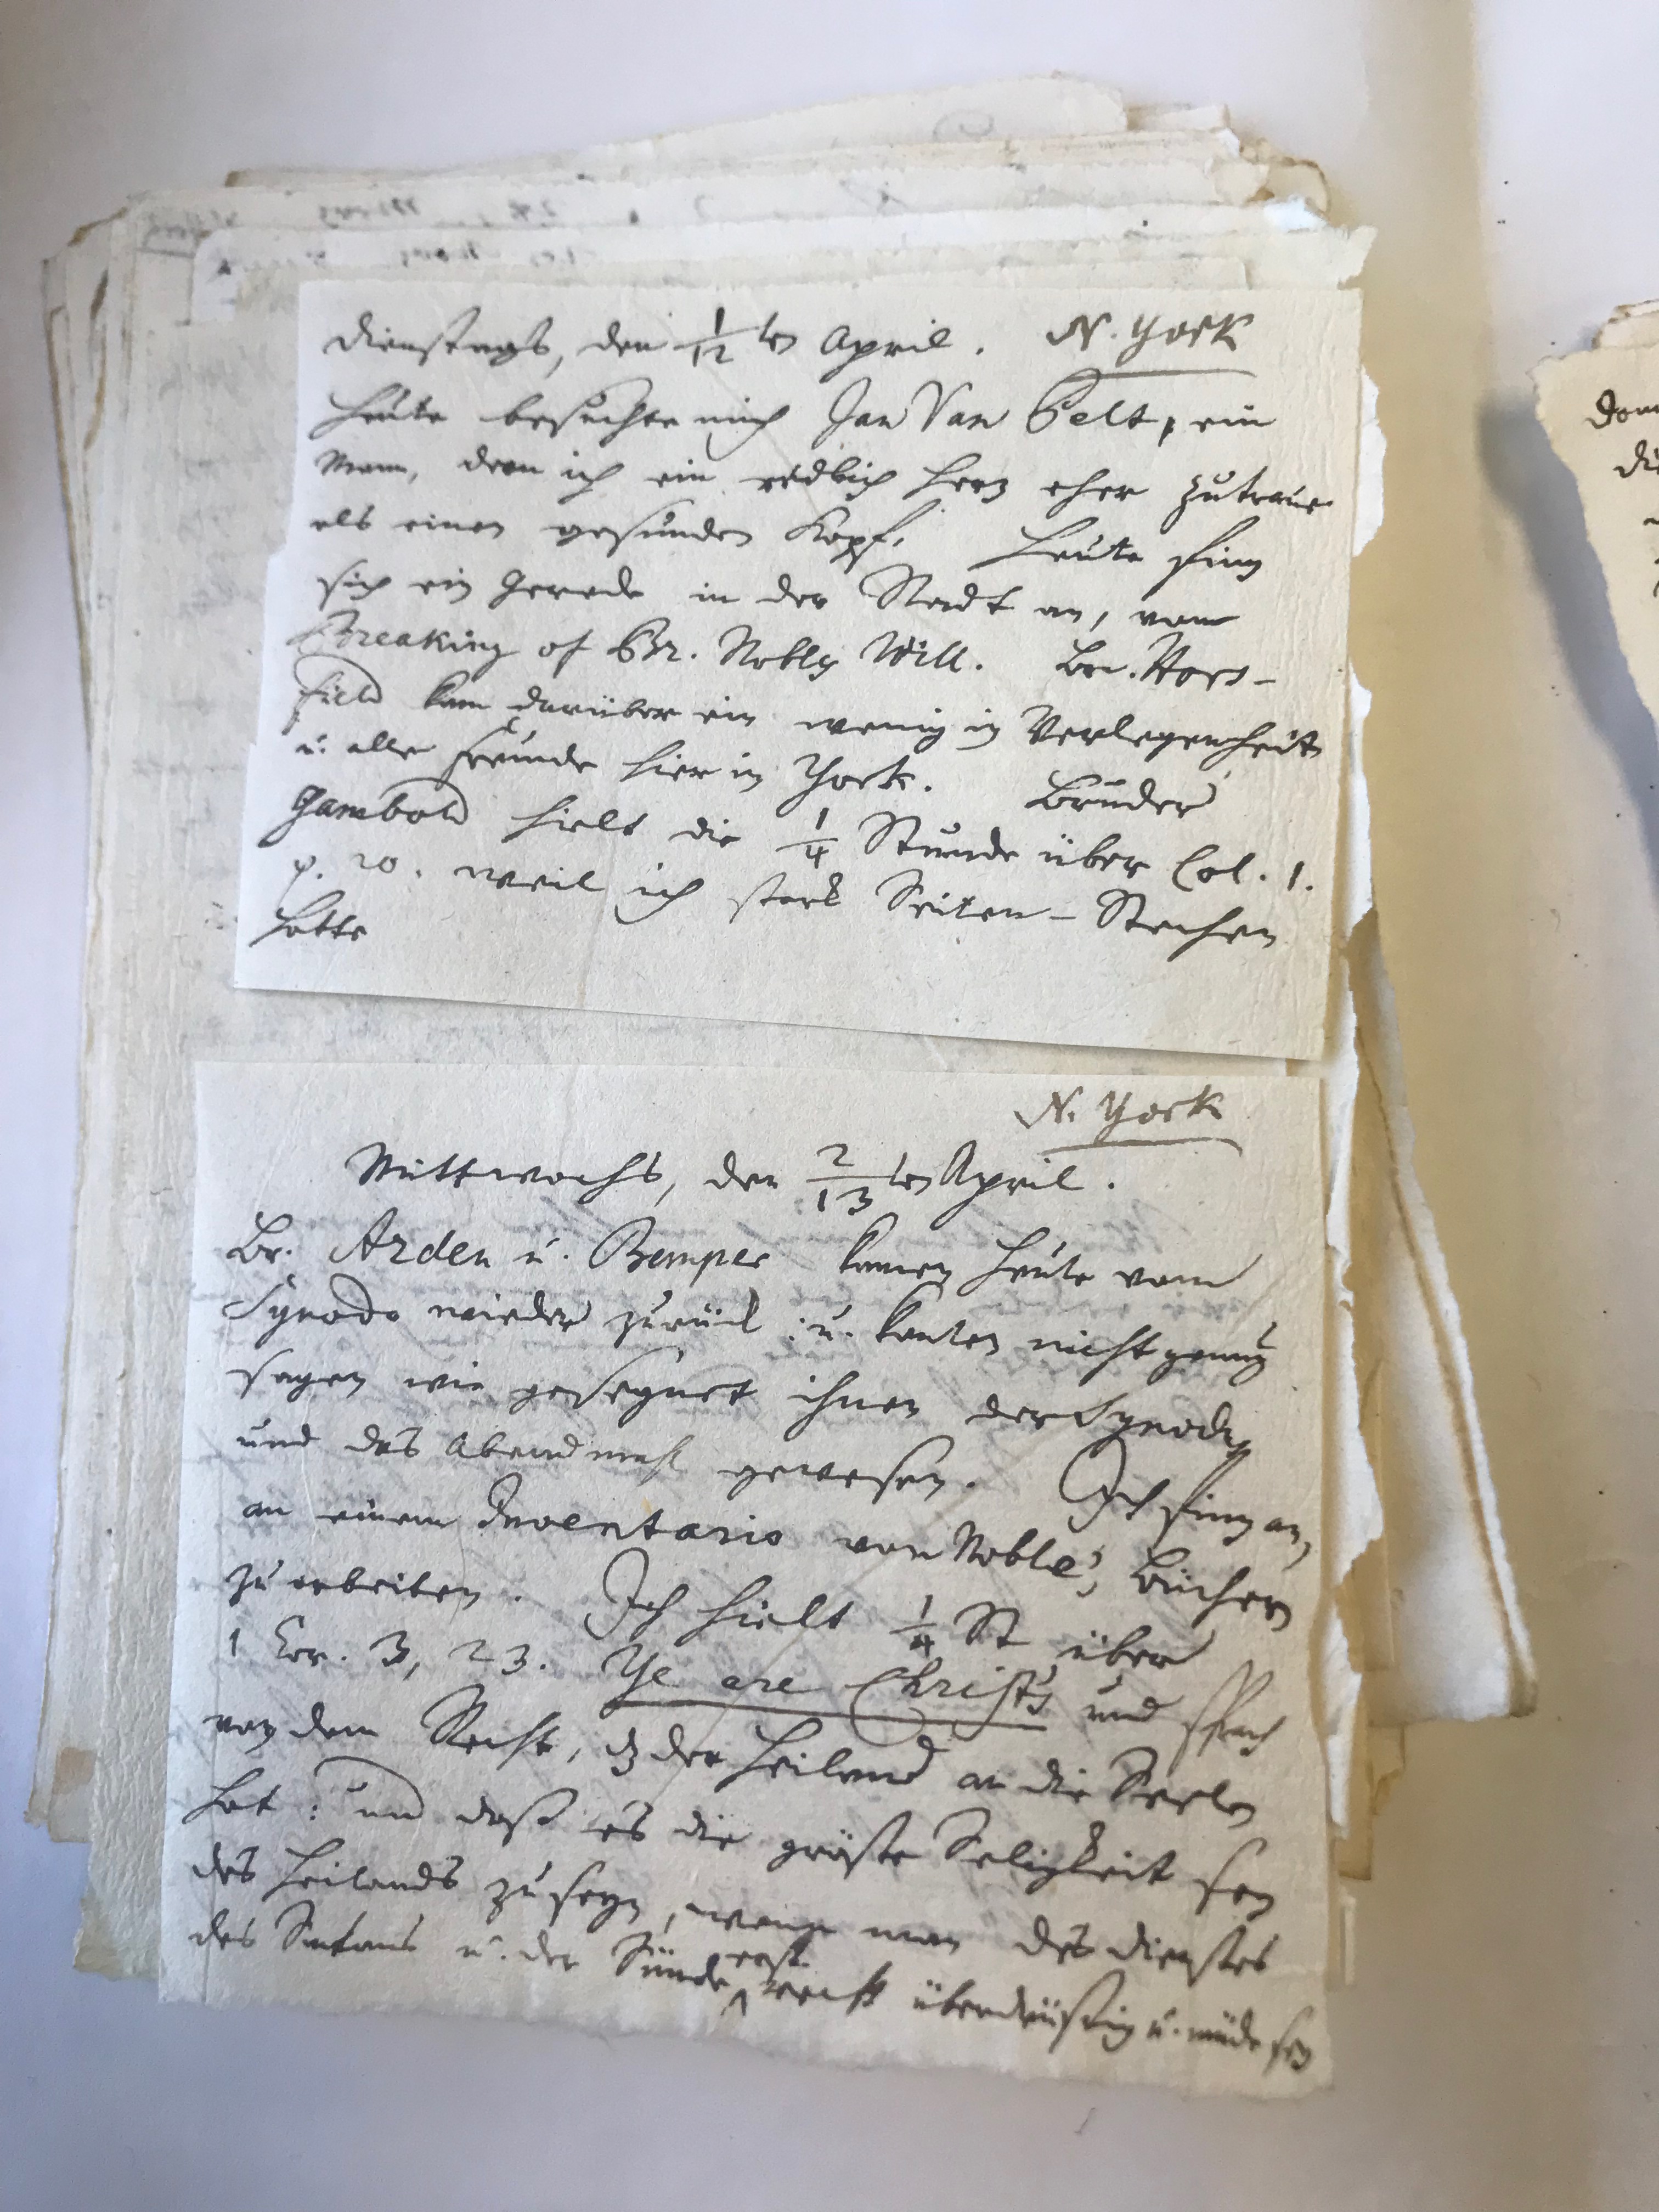 Dienstags, den 1/12ten April. N. York
Heute besuchte mich Jan Van Pelt, ein
Mann, dem ich ein redlich Herz eher zutraue
als einen gesunden Kopf. Heute fing
sich ein Gerede in der Stadt an, vom
Breaking of Br. Nobls Will. Br. Hors-
field kam darüber ein wenig in Verlegenheit
u. alle Freunde hier in York. Bruder
Gambold hielt die 1/4 Stunde über Col. 1.
v. 20. weil ich stark Seiten-Stechen
hatte
N. York
Mittwochs, den 2/13ten April.
Br. Arden u. Bemper kamen heute vom
Synodo wieder zurück: u. konten nicht genug
sagen wie gesegnet ihnen der Synodus
und das Abendmahl gewesen. Ich fing an,
an einem Inventario von Noble's Büchern
zu arbeiten. Ich hielt 1/4 St über
1 Cor. 3, 23. Ye are Christ's und sprach
von dem Recht, dz der Heiland an die Seelen
hat: und daß es die gröste Seligkeit sey
des Heilands zu seyn, wenn man des Dienstes
des Satans u. der Sünde erst recht überdrüßig u. müde sey
Dom
die